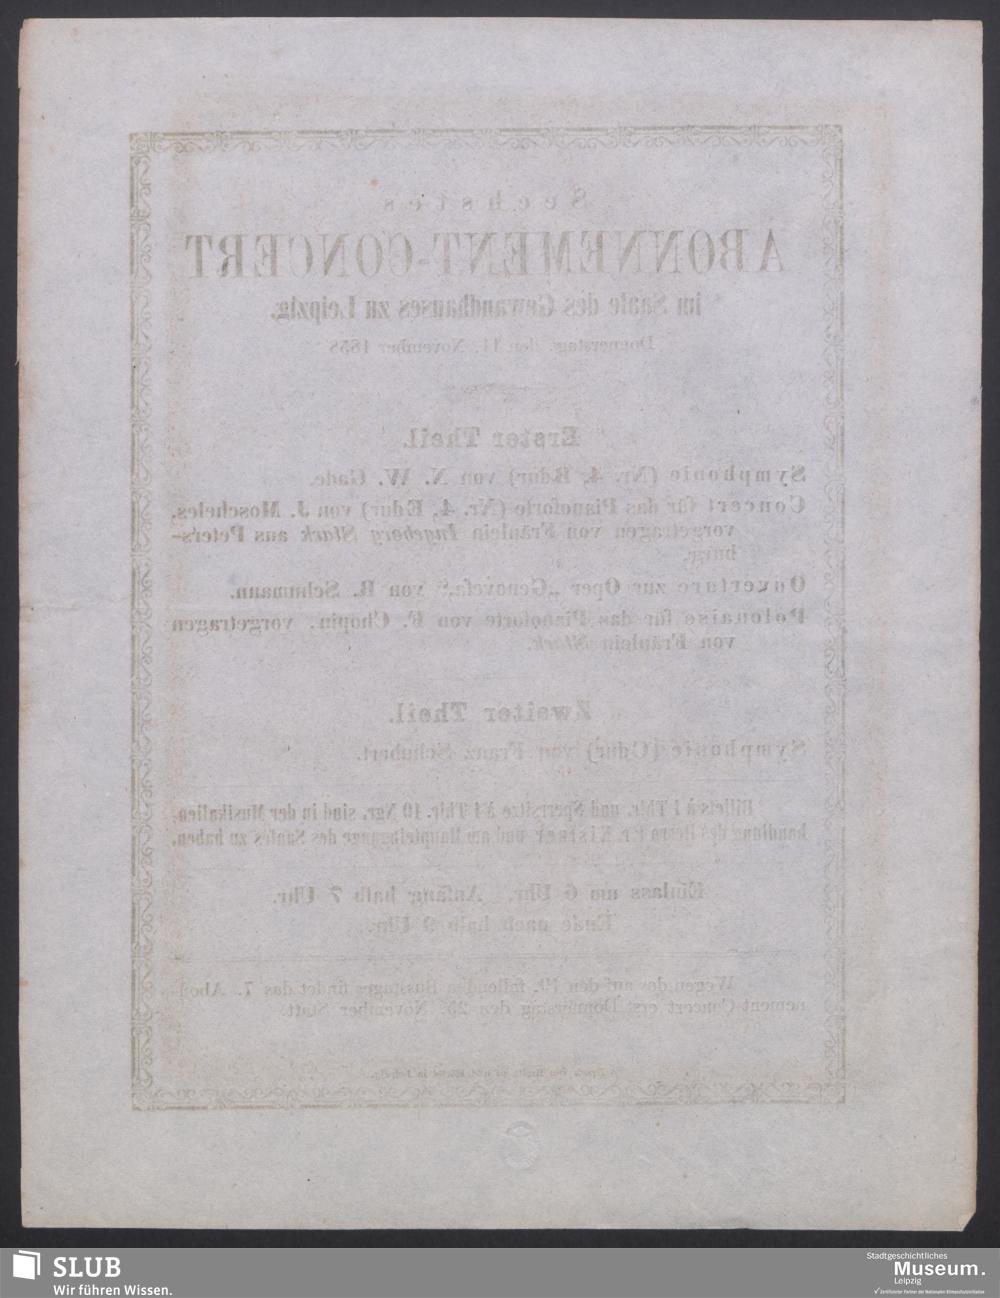 Sechstes
ABONNEMENT-CONCERT
im Saale des Gewandhauses zu Leipzig,
Donnerstag, den 11. November 1858.
Erster Theil.
Symphonie (Nr. 4, Bdur) von N. W. Gade.
Concert für das Pianoforte (Nr. 4, Edur) von J. Moscheles,
vorgetragen von Fräulein Ingeborg Stark aus Peters-
burg.
Ouverture zur Oper „Genovefa“ von R. Schumann.
Polonaise für das Pianoforte von F. Chopin, vorgetragen
von Fräulein Stark.
Zweiter Theil.
Symphonie (Cdur) von Franz Schubert.
Billets à 1 Thlr. und Sperrsitze à 1 Thlr. 10 Ngr. sind in der Musikalien-
handlung des Herrn Fr. Kistner und am Haupteingange des Saales zu haben.
Einlass um 6 Uhr. Anfang halb 7 Uhr.
Ende nach halb 9 Uhr.
Wegen des auf den 19. fallenden Busstages findet das 7. Abon-
nement-Concert erst Donnerstag den 25. November Statt.
SLUB
Wir führen Wissen.
Stadtgeschichtliches
Museum.
Leipzig
Zertifizierter Partner der Nationalen Klimaschutzinitiative